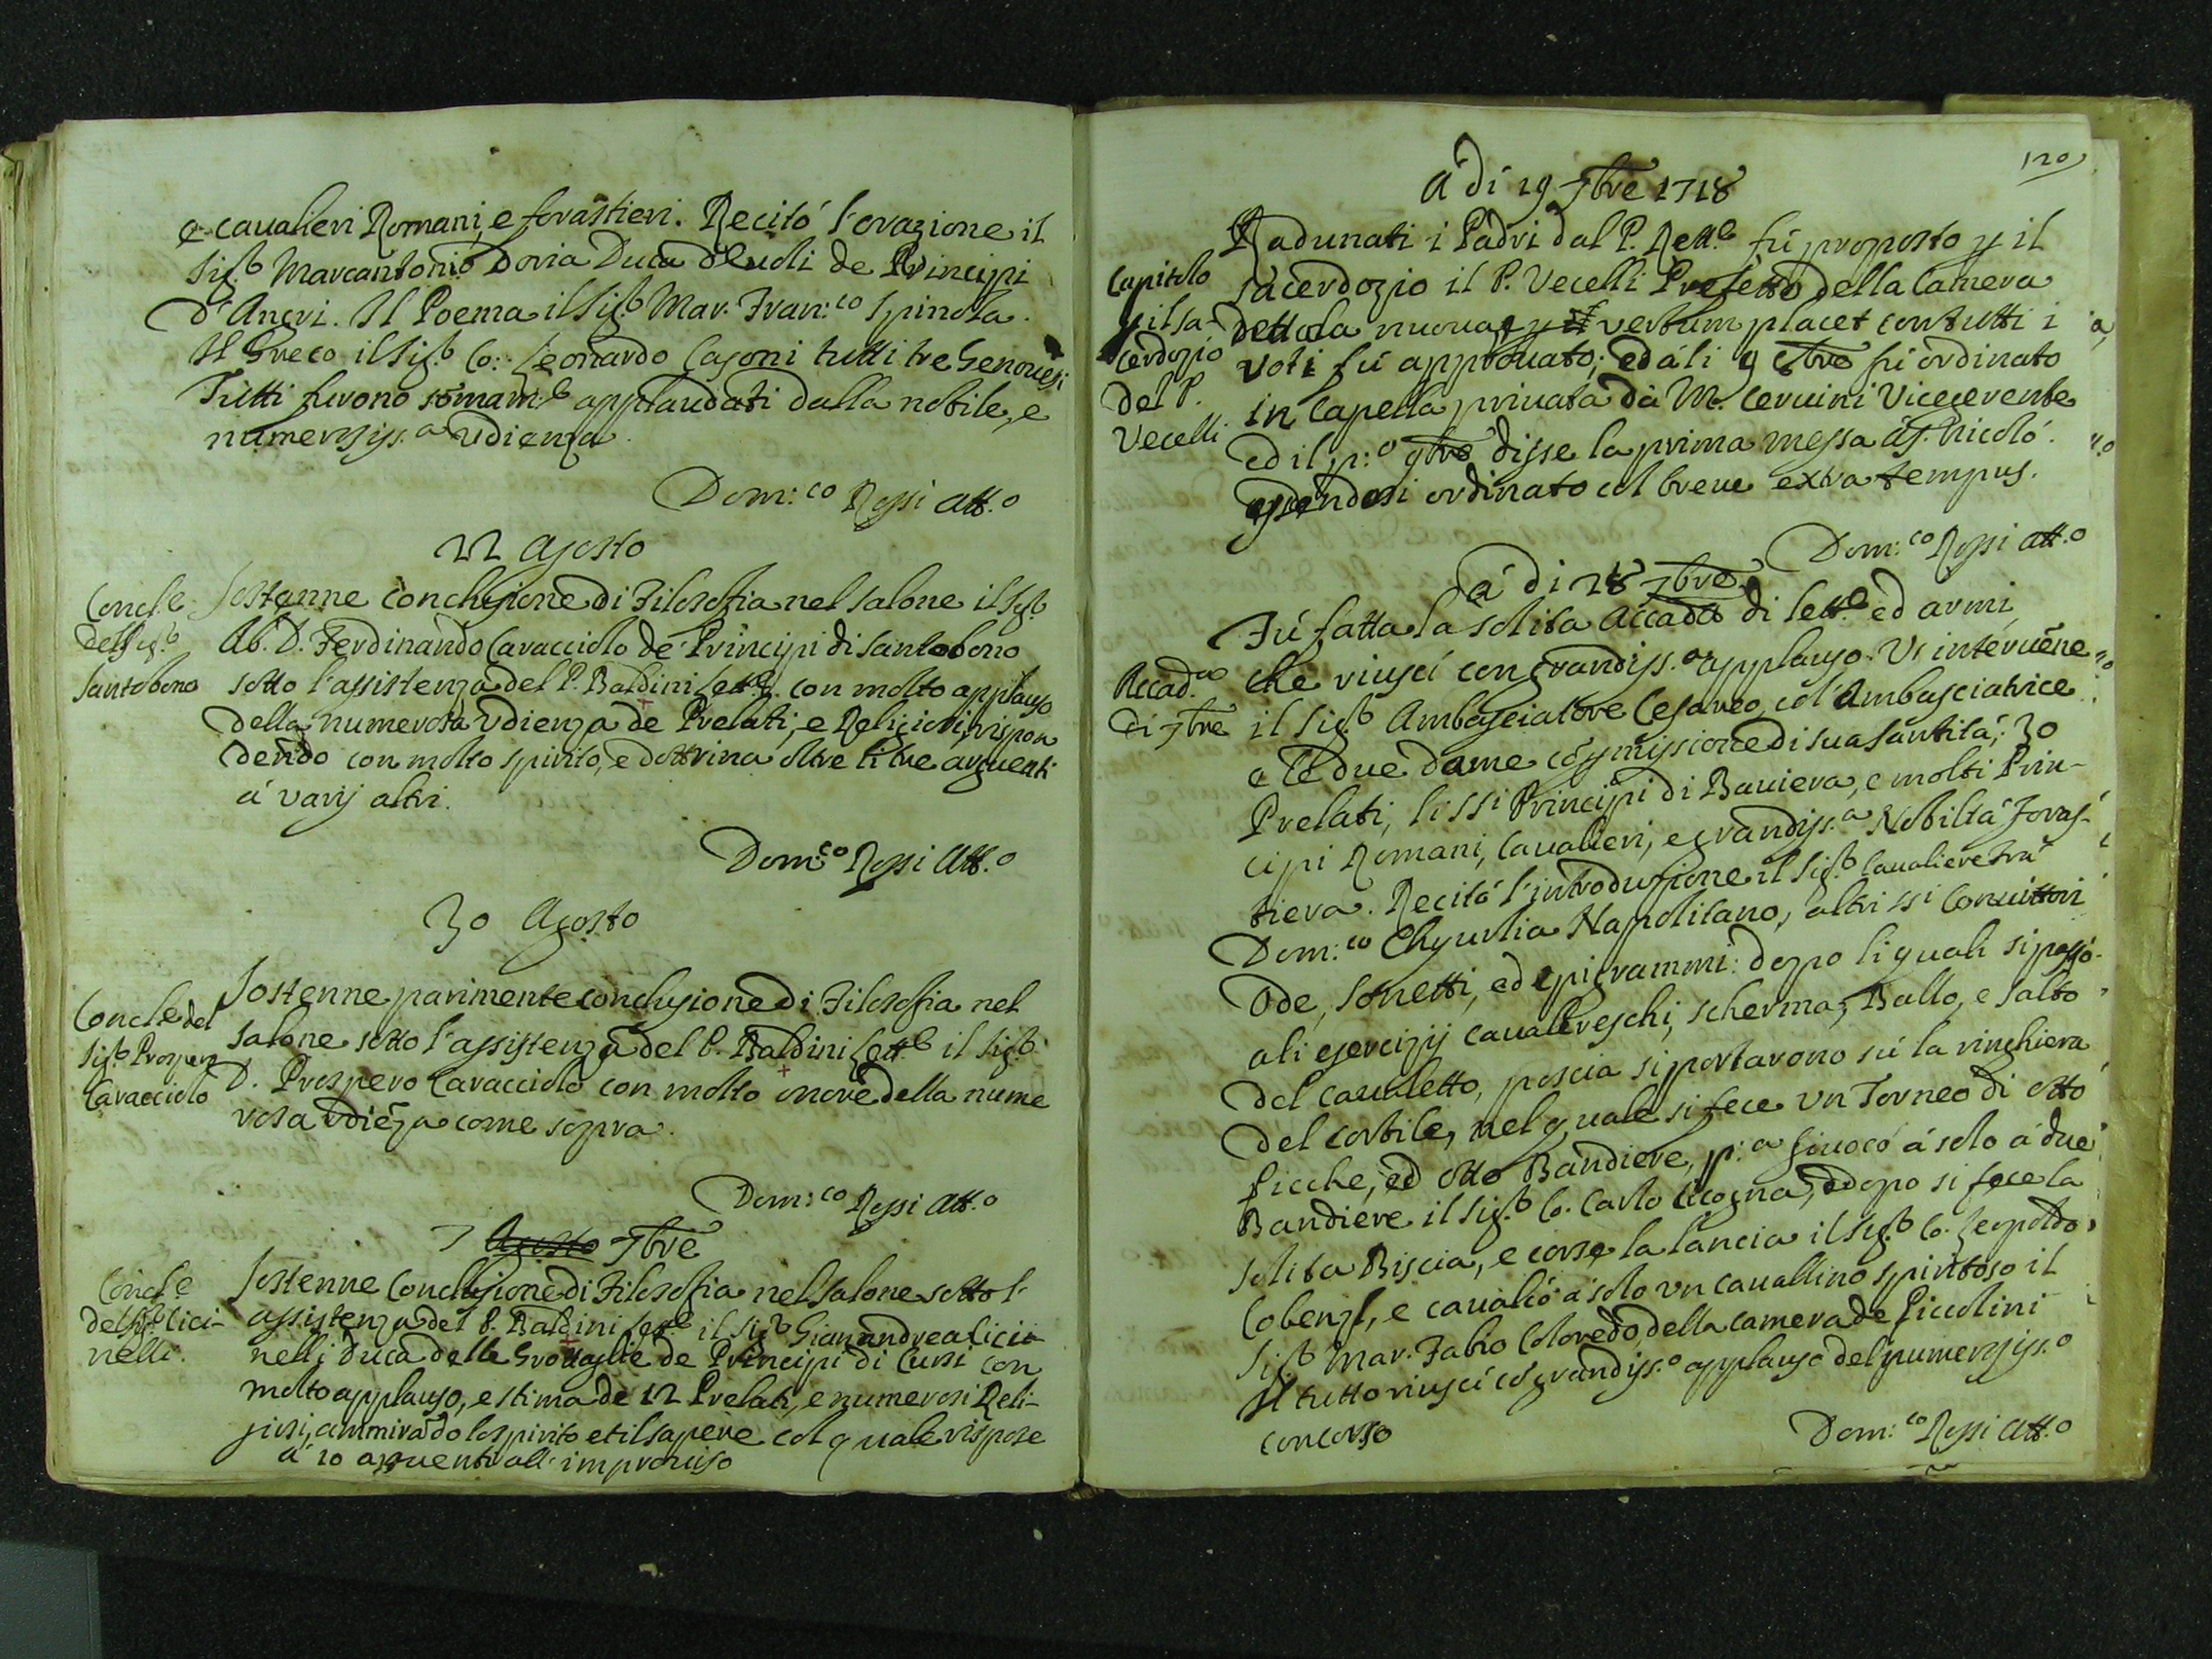 e cavalieri Romani, e forastieri. Recitó l'orazione il
Sig.re Marcantonio Doria Duca d'Evoli de Principi
d'Angri. Il Poema il Sig.re Mar. Fran:co Spinola.
Il Greco il Sig.re Co: Leonardo Casoni tutti tre Genovesi
Tutti furono somam.te applaudati dalla nobile, e
numerosiss.a Udienza.
Dom:co Rossi Att.o
22 Agosto
Concl.e
del Sig.re
Santobono
Sostenne conclusione di Filosofia nel salone il Sig.re
Ab. D. Ferdinando Caracciolo de Principi di Santobono
sotto l'assistenza del P. Baldini Lett.e con molto applauso
della numerosa Udienza de Prelati, e Religiosi, rispon
dendo con molto spirito, e dottrina oltre li tre arguenti
á varij altri.
Dom:co Rossi Att.o
30 Agosto
Concl.e del
Sig.re Prospero
Caracciolo
Sostenne parimente conclusione di Filosofia nel
salone sotto l'assistenza del P. Baldini Lett.e il Sig.re
D. Prospero Caracciolo con molto onore della nume
rosa udiēza come sopra.
Dom:co Rossi Att.o
7 Agosto 7bre
Concl.e
del Sig.re Cici-
nelli.
Sostenne Conclusione di Filosofia nel salone sotto l'
assistenza del P. Baldini Lett.e il Sig.re Gianandrea Cicii
nelli Duca delle Grottaglie de Principi di Cursi con
molto applauso, e stima de 12 Prelati, e numerosi Reli-
giosi, ammirādo lo spirito et il sapere col quale rispose
á 10 arguenti all'improviso
120
á di 19 7bre 1718
Capitolo
p il sa-
cerdozio
del P.
Vecelli
Radunati i Padri dal P. Rett.e fú proposto p il
sacerdozio il P. Vecelli Prefetto della Camera
detta la nuova, e p il verbum placet con tutti i
voti fú approvato; ed áli 9 8bre fú ordinato
in Capella privata da M. Cervini Vicegerente
ed il p:o 9bre disse la prima messa á S. Nicoló.
essendosi ordinato col breve extra tempus.
Dom:co Rossi Att.o
á di 28 7bre
Accad.a
di 7bre
Fú fatta la solita Accada di lett.e ed armi,
che riuscí con grandiss.o applauso. Vi intervēne
il Sig.re Ambasciatore Cesareo, col' Ambasciatrice
e le due dame cō pmissione di sua Santitá; 30
Prelati, li SSi Principi di Baviera, e molti Prin-
cipi Romani, Cavalieri, e grandiss.a Nobiltá Foras-
tiera. Recitó l'introduzione il Sig.re Cavaliere Frá
Dom:co Chyurlia Napolitano, altri SSi Convittori
Ode, Sonetti, ed epigrammi: dopo li quali si passó
ali esercizij cavallereschi, scherma, Ballo, e Salto
del cavaletto, poscia si portarono sú la ringhiera
del cortile, nel quale si fece un Torneo di otto
Picche, ed otto Bandiere, p:a giuocó á solo á due
Bandiere il Sig.re Co. Carlo Cicogna, e dopo si fece la
solita Biscia, e corse la lancia il Sig.re Co. Leopoldo
Cobenzl, e cavalcó á solo un cavallino spiritoso il
Sig.re Mar. Fabio Coloredo della camera de Piccolini
Il tutto riuscí cō grandiss.o applauso del numerosiss.o
concorso
Dom:co Rossi Att.o